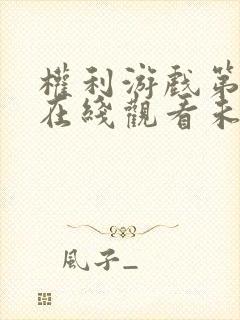 權利游戲第
在綫觀看未
風子_